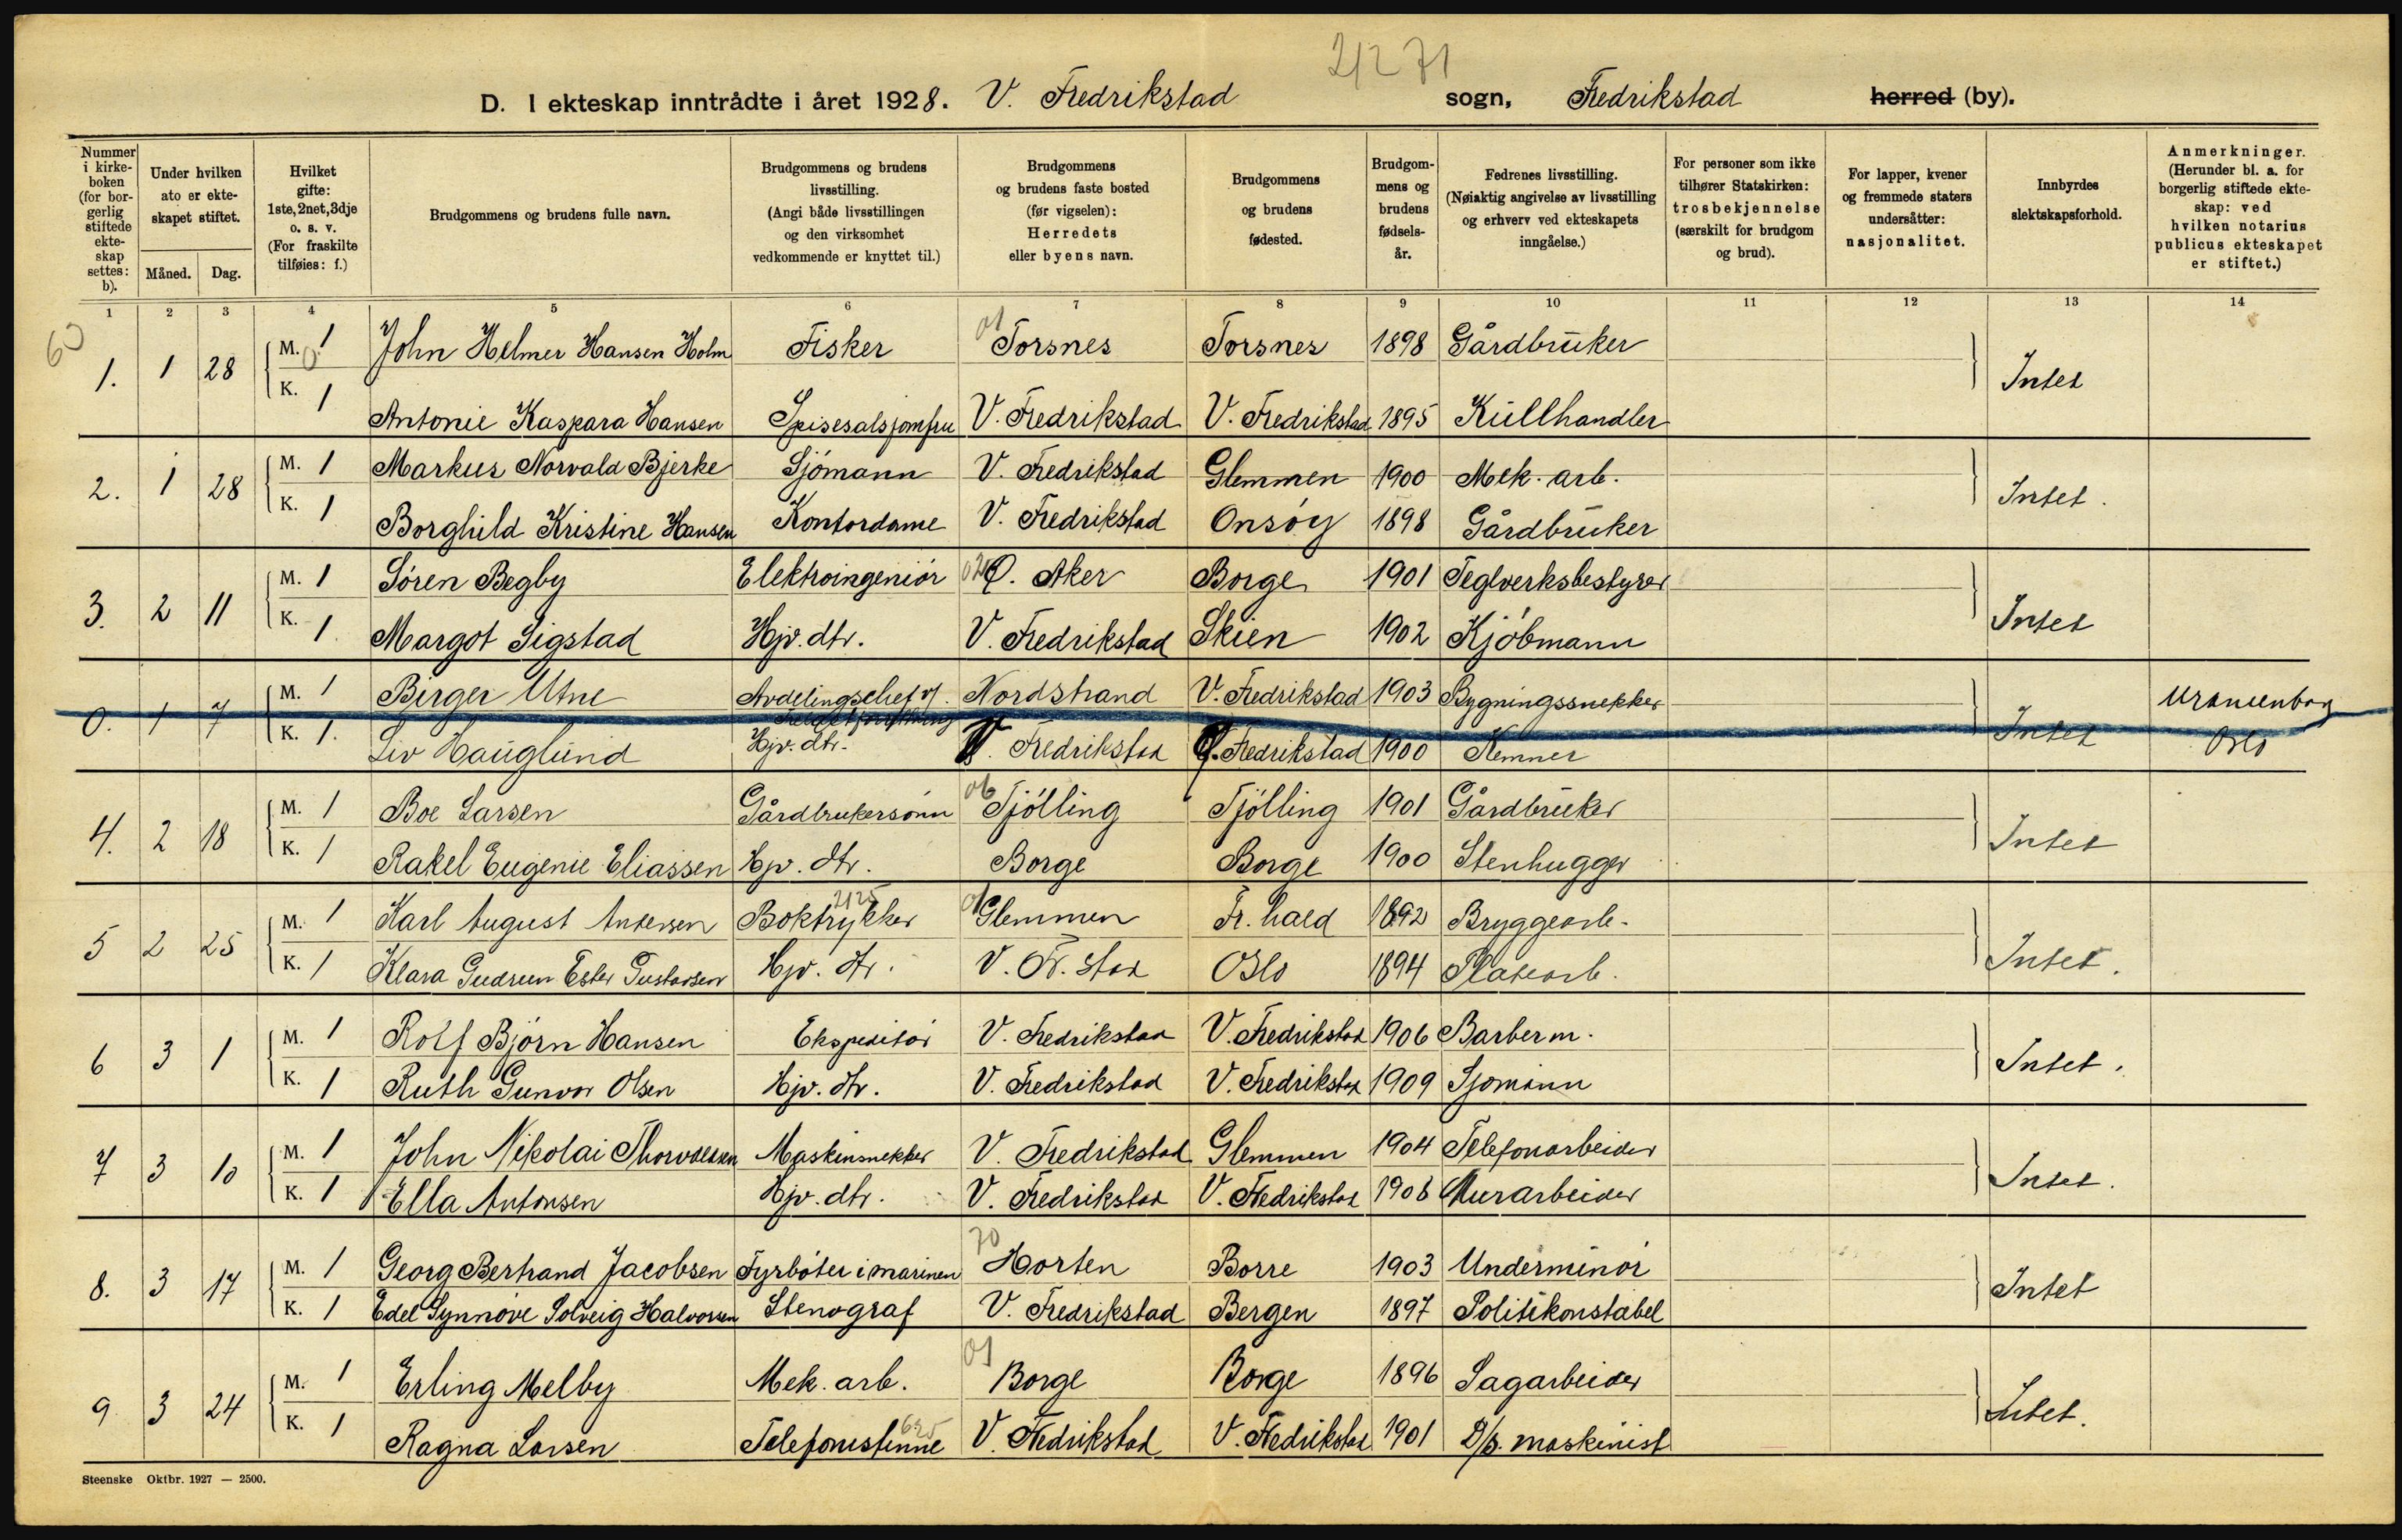 21271
D. I ekteskap inntrådte i året 1928. V. Fredrikstad sogn, Fredrikstad herred (by).
Nummer i kirke-boken (for bor-gerlig stiftede ekte-skap settes: b).
Under hvilken ato er ekte-skapet stiftet.
Måned. Dag.
Hvilket gifte: 1ste, 2net, 3dje o. s. v. (For fraskilte tilføies: f.)
Brudgommens og brudens fulle navn.
Brudgommens og brudens livsstilling. (Angi både livsstillingen og den virksomhet vedkommende er knyttet til.)
Brudgommens og brudens faste bosted (før vigselen): Herredets eller byens navn.
Brudgommens og brudens fødested.
Brudgom-mens og brudens fødsels-år.
Fedrenes livsstilling. (Nøiaktig angivelse av livsstilling og erhverv ved ekteskapets inngåelse.)
For personer som ikke tilhører Statskirken: trosbekjennelse (særskilt for brudgom og brud).
For lapper, kvener og fremmede staters undersåtter: nasjonalitet.
Innbyrdes slektskapsforhold.
Anmerkninger. (Herunder bl. a. for borgerlig stiftede ekte-skap: ved hvilken notarius publicus ekteskapet er stiftet.)
1 2 3 4 5 6 7 8 9 10 11 12 13 14
60 01
1. 1 28 M. 1 0 John Helmer Hansen Holm Fisker Torsnes Torsnes 1898 Gårdbruker Intet
K. 1 Antonie Kaspara Hansen Spisesalsjomfru V. Fredrikstad V. Fredrikstad 1895 Kullhandler
2. 1 28 M. 1 Markus Norvald Bjerke Sjømann V. Fredrikstad Glemmen 1900 Mek. arb. Intet.
K. 1 Borghild Kristine Hansen Kontordame V. Fredrikstad Onsøy 1898 Gårdbruker
3. 2 11 M. 1 Søren Begby Elektroingeniør 02 Ø. Aker Borge 1901 Teglverksbestyrer Intet
K. 1 Margot Sigstad Hjv. dtr. V. Fredrikstad Skien 1902 Kjøbmann
0. 1 7 M. 1 Birger Utne Avdelingschef v/ Nordstrand V. Fredrikstad 1903 Bygningssnekker Intet Uranienborg
K. 1. Liv Hauglund Hjv. dtr. V. Fredrikstad V. Fredrikstad 1900 Kemner Oslo
4. 2 18 M. 1 Boe Larsen Gårdbrukersønn 06 Tjølling Tjølling 1901 Gårdbruker Intet
K. 1 Rakel Eugenie Eliassen Hjv. dtr. Borge Borge 1900 Stenhugger
5 2 25 M. 1 Karl August Andersen Boktrykker 2125 01 Glemmen Fr. hald 1892 Bryggearb. Intet.
K. 1 Klara Gudrun Ester Gustavsen Hjv. dtr. V. Fr. stad Oslo 1894 Platearb.
6 3 1 M. 1 Rolf Bjørn Hansen Ekspeditør V. Fredrikstad V. Fredrikstad 1906 Barberm. Intet.
K. 1 Ruth Gunvor Olsen Hjv. dtr. V. Fredrikstad V. Fredrikstad 1909 Sjømann
7 3 10 M. 1 John Nikolai Thorvaldsen Maskinsnekker V. Fredrikstad Glemmen 1904 Telefonarbeider Intet.
K. 1 Ella Antonsen Hjv. dtr. V. Fredrikstad V. Fredrikstad 1906 Murarbeider
8. 3 17 M. 1 Georg Bertrand Jacobsen Fyrbøter i marinen 70 Horten Borre 1903 Underminør Intet
K. 1 Edel Synnøve Solveig Halvorsen Stenograf V. Fredrikstad Bergen 1897 Politikonstabel
9 3 24 M. 1 Erling Melby Mek. arb. 01 Borge Borge 1896 Sagarbeider Intet.
K. 1 Ragna Larsen Telefonistinne V. Fredrikstad V. Fredrikstad 1901 D/s. maskinist
Steenske Oktbr. 1927 — 2500.